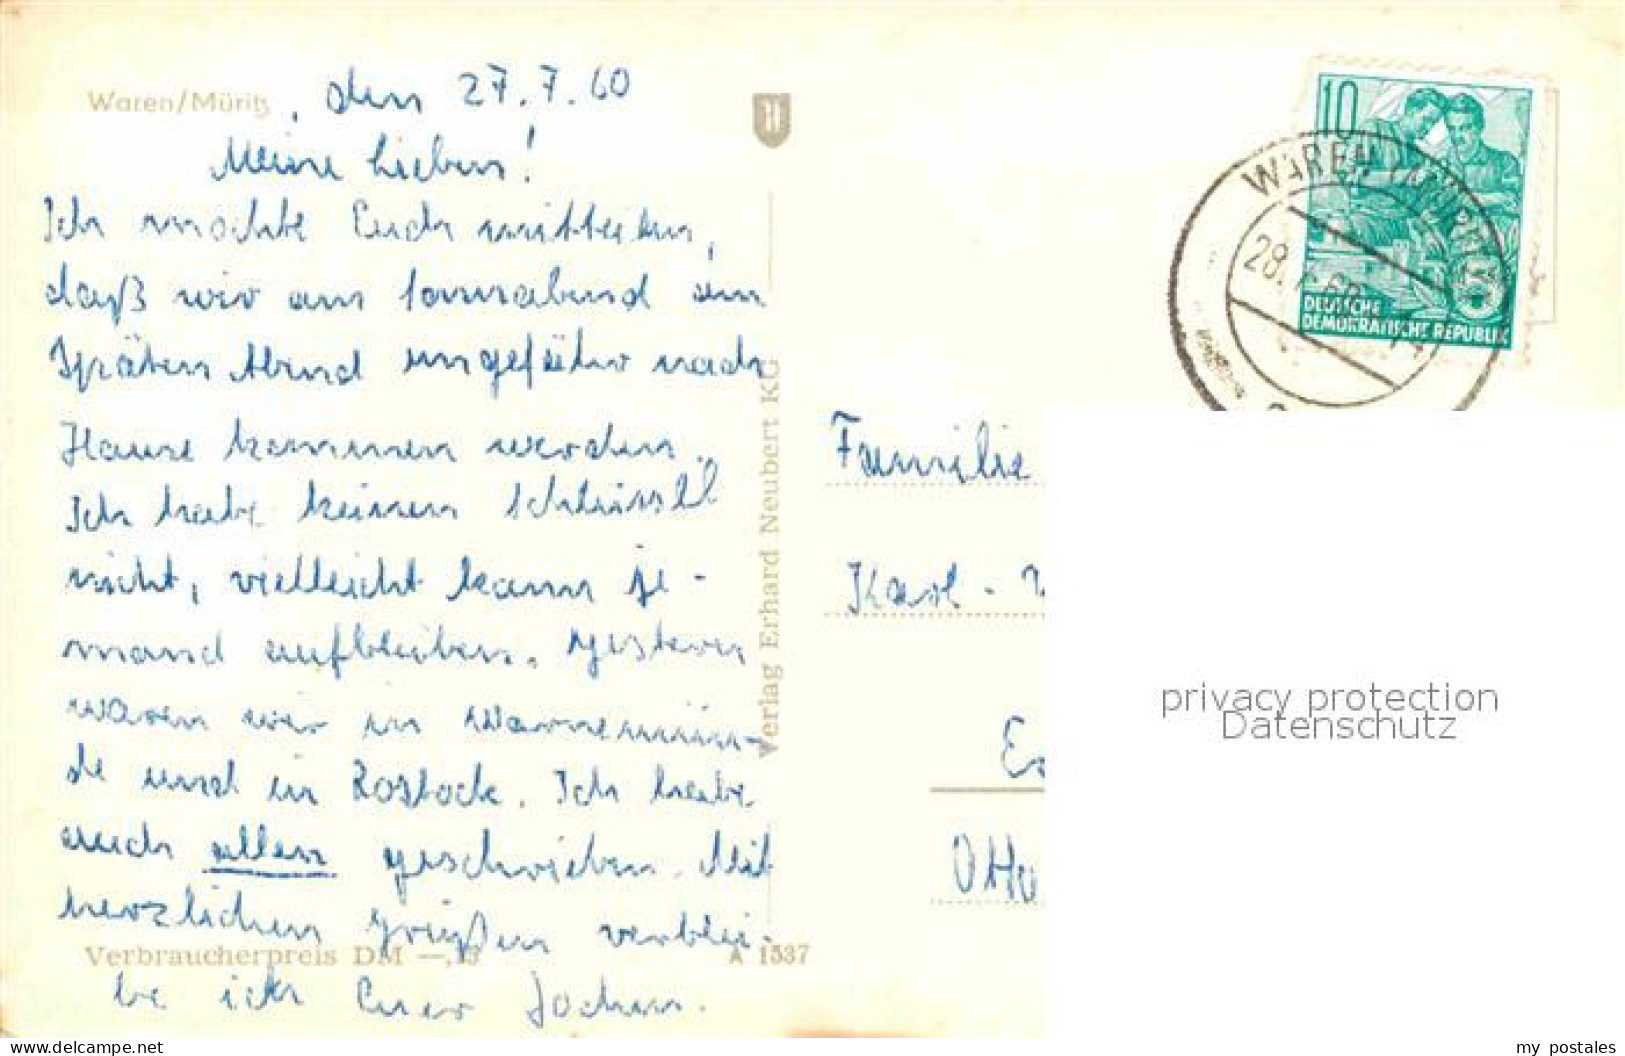 Waren/Müritz, den 27.7.60
Meine Lieben!
Ich mochte Euch mitteilen,
daß wir am Sonnabend am
Späten Abend ungefähr nach
Hause kommen werden.
Ich habe keinen Schlüssel
nicht, vielleicht kann je-
mand aufbleiben. Gestern
waren wir in Warnemün-
de und in Rostock. Ich habe
auch allen geschrieben. Mit
herzlichen Grüßen verblei-
be ich Euer Jochen.
Verbraucherpreis DM —,
A 1537
Verlag Erhard Neubert KG
10
DEUTSCHE
DEMOKRATISCHE REPUBLIK
WAREN (MÜRITZ)
28.7.60
Familie
Karl -
Otto
privacy protection
Datenschutz
www.delcampe.net
my_postales